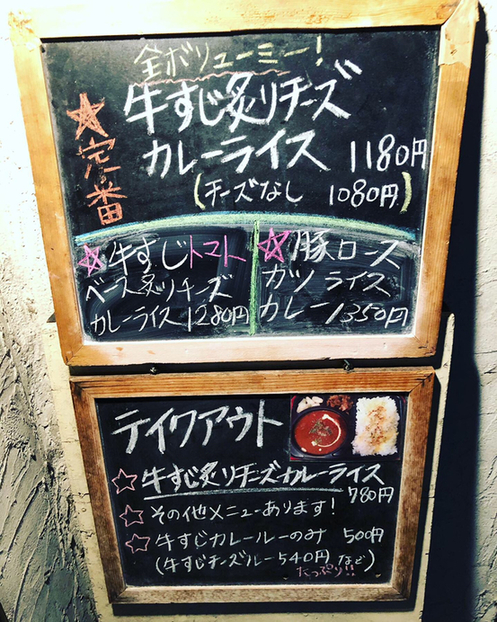 全ボリューミー!
★定番
牛すじ炙りチーズ
カレーライス 1180円
(チーズなし 1080円)
☆牛すじトマト
ベース炙りチーズ
カレーライス1280円
☆豚ロース
カツライス
カレー1350円
テイクアウト
☆牛すじ炙りチーズカレーライス
780円
☆その他メニューあります!
☆牛すじカレールーのみ 500円
(牛すじチーズルー540円など)
たっぷり!!